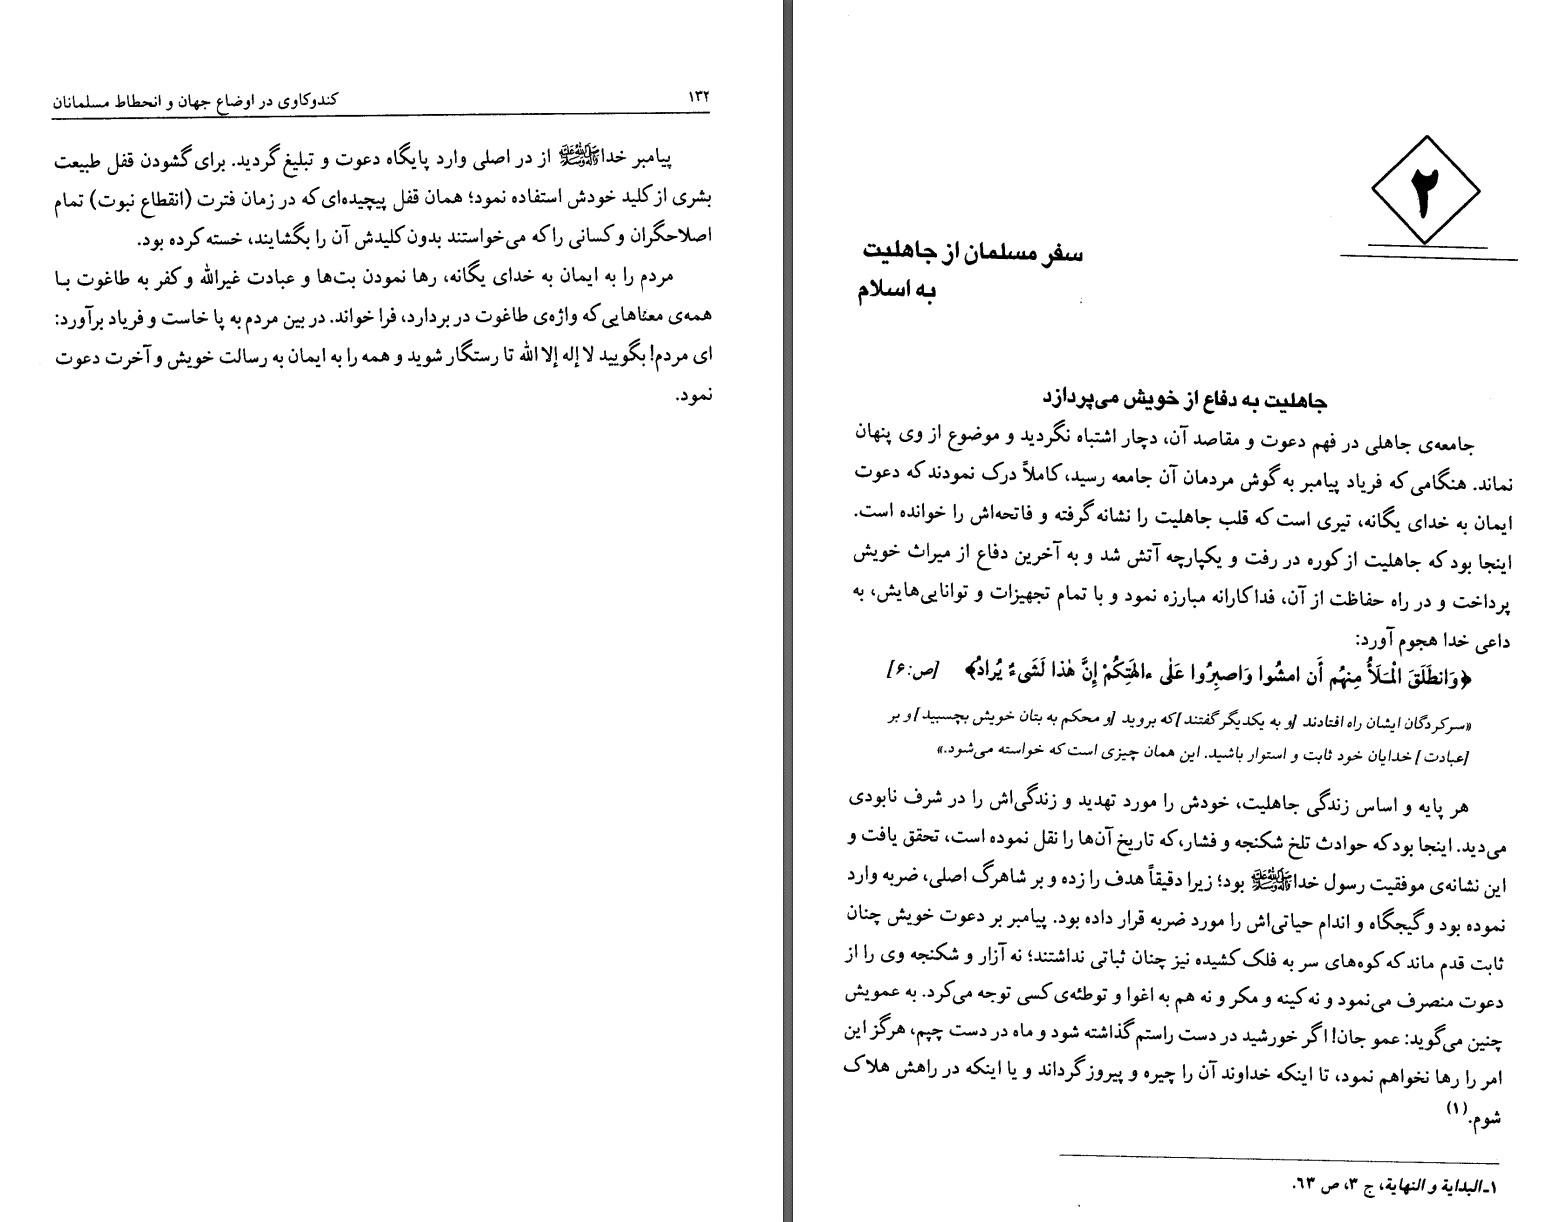 ۱۳۲ کندوکاوی در اوضاع جهان و انحطاط مسلمانان
پیامبر خداﷺ از در اصلی وارد پایگاه دعوت و تبلیغ گردید. برای گشودن قفل طبیعت
بشری از کلید خودش استفاده نمود؛ همان قفل پیچیده‌ای که در زمان فترت (انقطاع نبوت) تمام
اصلاحگران و کسانی را که می‌خواستند بدون کلیدش آن را بگشایند، خسته کرده بود.
مردم را به ایمان به خدای یگانه، رها نمودن بت‌ها و عبادت غیرالله و کفر به طاغوت با
همه‌ی معناهایی که واژه‌ی طاغوت در بردارد، فرا خواند. در بین مردم به پا خاست و فریاد برآورد:
ای مردم! بگویید لا إله إلا الله تا رستگار شوید و همه را به ایمان به رسالت خویش و آخرت دعوت
نمود.
۲
سفر مسلمان از جاهلیت
به اسلام
جاهلیت به دفاع از خویش می‌پردازد
جامعه‌ی جاهلی در فهم دعوت و مقاصد آن، دچار اشتباه نگردید و موضوع از وی پنهان
نماند. هنگامی که فریاد پیامبر به گوش مردمان آن جامعه رسید، کاملاً درک نمودند که دعوت
ایمان به خدای یگانه، تیری است که قلب جاهلیت را نشانه گرفته و فاتحه‌اش را خوانده است.
اینجا بود که جاهلیت از کوره در رفت و یکپارچه آتش شد و به آخرین دفاع از میراث خویش
پرداخت و در راه حفاظت از آن، فداکارانه مبارزه نمود و با تمام تجهیزات و توانایی‌هایش، به
داعی خدا هجوم آورد:
﴿وَانطَلَقَ الْمَلَأُ مِنهُم أَن امشُوا وَاصبِرُوا عَلٰی ءالهَتِکُمْ إِنَّ هٰذا لَشَیءٌ یُرادُ﴾ [ص:۶]
«سرکردگان ایشان راه افتادند [و به یکدیگر گفتند] که بروید [و محکم به بتان خویش بچسبید] و بر
[عبادت] خدایان خود ثابت و استوار باشید. این همان چیزی است که خواسته می‌شود.»
هر پایه و اساس زندگی جاهلیت، خودش را مورد تهدید و زندگی‌اش را در شرف نابودی
می‌دید. اینجا بود که حوادث تلخ شکنجه و فشار، که تاریخ آن‌ها را نقل نموده است، تحقق یافت و
این نشانه‌ی موفقیت رسول خداﷺ بود؛ زیرا دقیقاً هدف را زده و بر شاهرگ اصلی، ضربه وارد
نموده بود و گیجگاه و اندام حیاتی‌اش را مورد ضربه قرار داده بود. پیامبر بر دعوت خویش چنان
ثابت قدم ماند که کوه‌های سر به فلک کشیده نیز چنان ثباتی نداشتند؛ نه آزار و شکنجه وی را از
دعوت منصرف می‌نمود و نه کینه و مکر و نه هم به اغوا و توطئه‌ی کسی توجه می‌کرد. به عمویش
چنین می‌گوید: عمو جان! اگر خورشید در دست راستم گذاشته شود و ماه در دست چپم، هرگز این
امر را رها نخواهم نمود، تا اینکه خداوند آن را چیره و پیروز گرداند و یا اینکه در راهش هلاک
شوم.(۱)
۱ـ البدایة و النهایة، ج ۳، ص ۶۳.